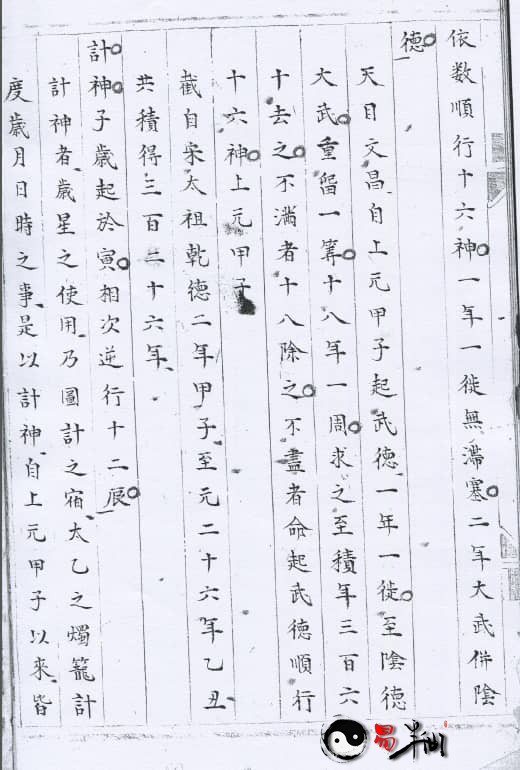 依数順行十六神一年一徙無滯塞二年大武併陰
德
天目文昌自上元甲子起武德一年一徙至陰德
大武重留一筭十八年一周求之至積年三百六
十去之不滿者十八除之不盡者命起武德順行
十六神上元甲子
截自宋太祖乾德二年甲子至元二十六年乙丑
共積得三百二十六年
計神子歲起於寅相次逆行十二辰
計神者歲星之使用乃圖計之宿太乙之燭籠計
度歲月日時之事是以計神自上元甲子以來皆
易半仙